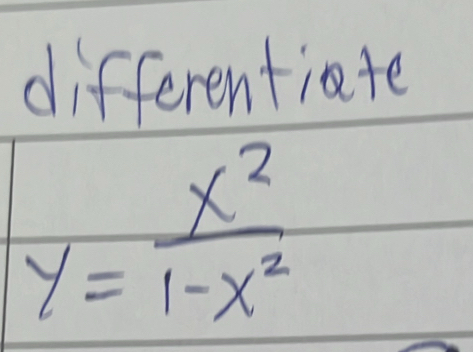 differentiate
y = x²/(1-x²)